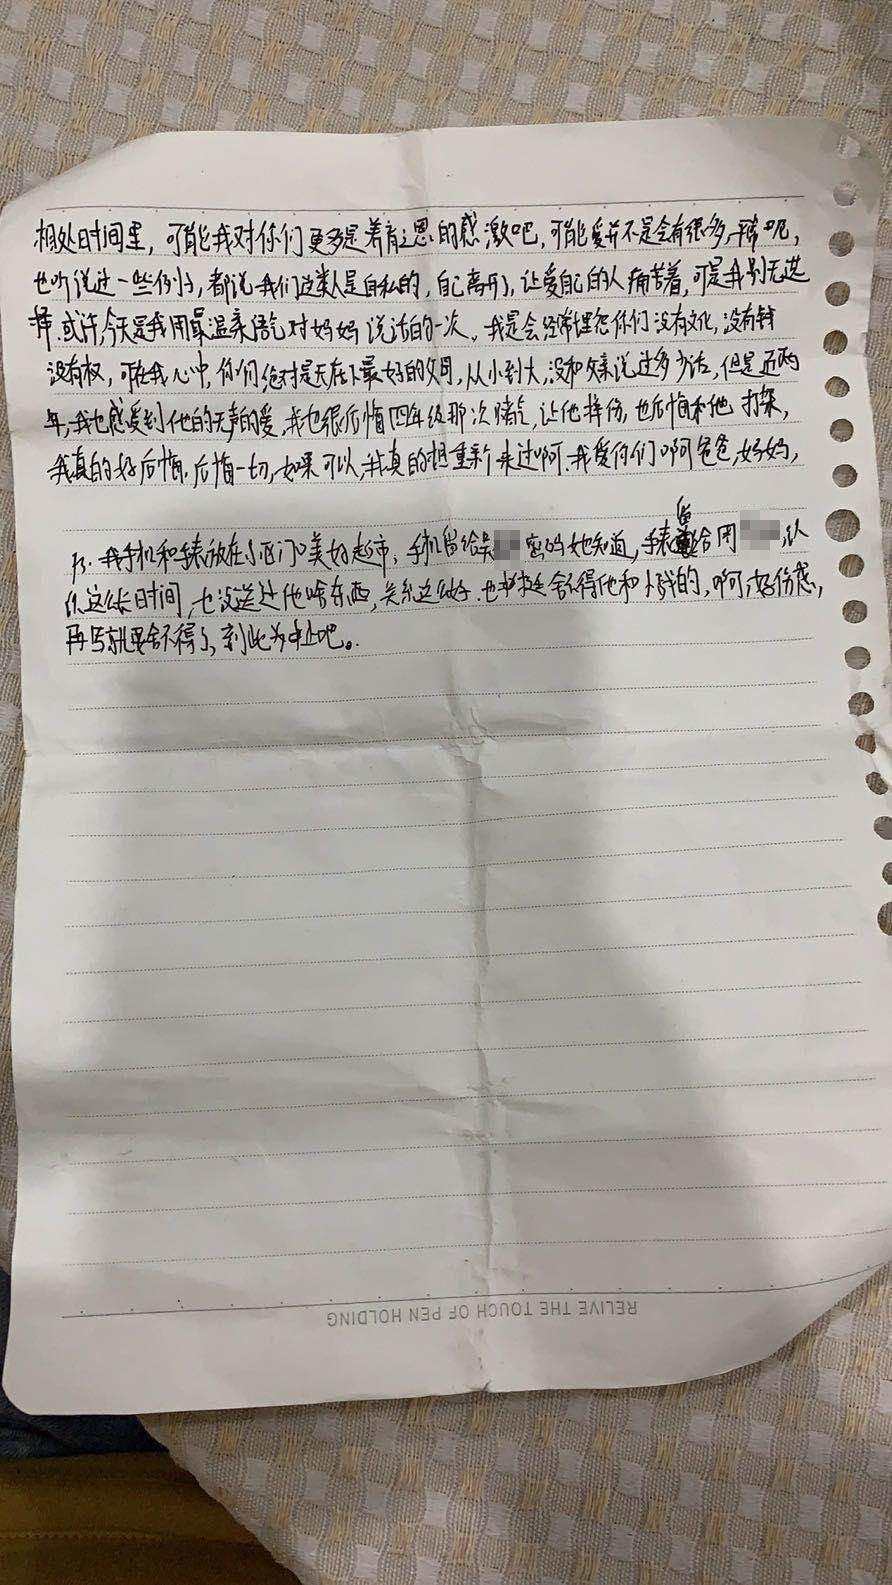 相处时间里，可能我对你们更多是养育之恩的感激吧，可能爱并不是会有很多，
也听说过一些例子，都说我们这类人是自私的，自己离开了，让爱自己的人痛苦着，可是我别无选
择。或许，今天是我用最温柔语气对妈妈说话的一次。我是会经常埋怨你们没有文化，没有钱
没有权，可在我心中，你们绝对是天底下最好的父母，从小到大，没和父亲说过多少话，但是近两
年，我也感受到他的无声的爱，我也很后悔四年级那次赌气，让他摔伤，也后悔和他打架，
我真的好后悔，后悔一切，如果可以，我真的想重新来过啊。我爱你们啊爸爸，妈妈，
Ps. 我手机和手表放在小区门口美好超市，手机留给吴 密码她知道，手表留给周 ，认
识这么长时间，也没送过他啥东西，关系这么好，也舍不得他和 的，啊，好伤感，
再写就要舍不得了，到此为止吧。
RELIVE THE TOUCH OF PEN HOLDING